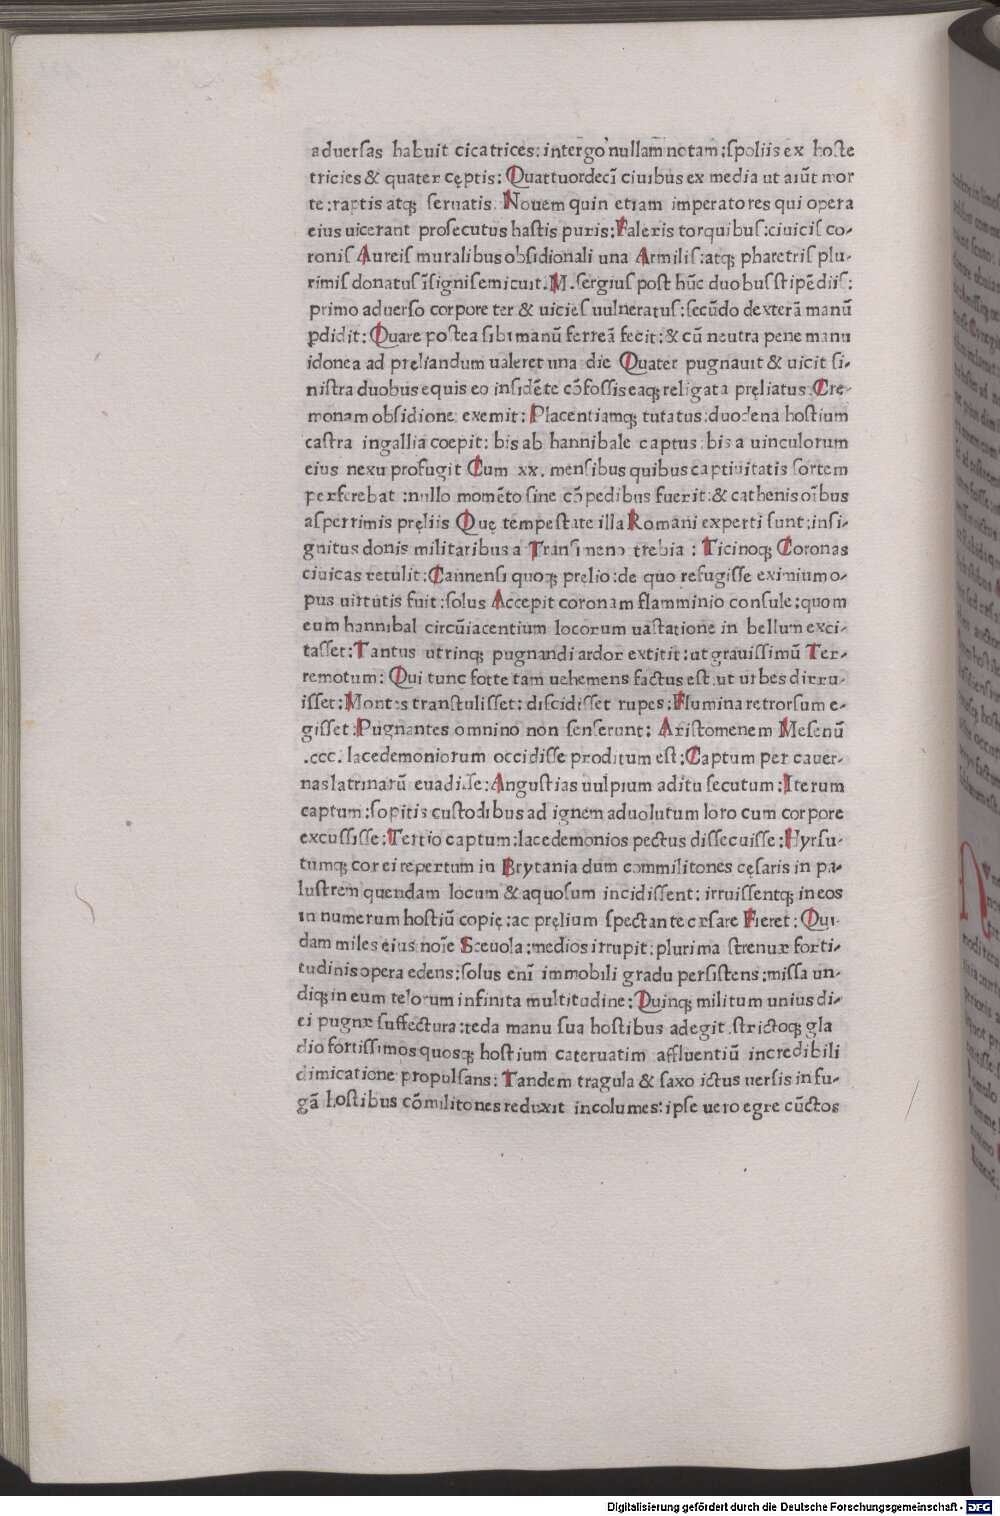 aduerſas habuit cicatrices: intergo nullam notam: ſpoliis ex hoſte
tricies & quater cęptis: Quattuordecī ciuibus ex media ut aiūt mor
te: raptis atqꝫ ſeruatis. Nouem quin etiam imperatores qui opera
eius uicerant proſecutus haſtis puris: Faleris torquibuſ: ciuiciſ co-
roniſ Aureiſ muralibus obſidionali una Armiliſ: atqꝫ pharetriſ plu-
rimiſ donatuſ īſigniſ emicuit. M. ſergius poſt hūc duobuſ ſtipēdiiſ:
primo aduerſo corpore ter & uicieſ uulneratuſ: ſecūdo dexterā manū
ꝑdidit: Quare poſtea ſibi manū ferreā fecit: & cū neutra pene manu
idonea ad pręliandum ualeret una die Quater pugnauit & uicit ſi-
niſtra duobus equis eo inſidēte cōfoſſis eaqꝫ religata pręliatus. Cre-
monam obſidione exemit: Placentiamqꝫ tutatus. duodena hoſtium
caſtra ingallia coepit: bis ab hannibale captus: bis a uinculorum
eius nexu profugit Cum xx. menſibus quibus captiuitatis ſortem
perferebat: nullo momēto ſine cōpedibus fuerit: & cathenis oībus
aſperrimis pręliis Quę tempeſtate illa Romani experti ſunt: inſi-
gnitus donis militaribus a Tranſimeno trebia: Ticinoqꝫ Coronas
ciuicas retulit: Cannenſi quoqꝫ pręlio: de quo refugiſſe eximium o-
pus uirtutis fuit: ſolus Accepit coronam flamminio conſule: quom
eum hannibal circūiacentium locorum uaſtatione in bellum exci-
taſſet: Tantus utrinqꝫ pugnandi ardor extitit: ut grauiſſimū Ter-
remotum: Qui tunc forte tam uehemens factus eſt: ut urbes dirru-
iſſet: Montes tranſtuliſſet: diſcidiſſet rupes: Flumina retrorſum e-
giſſet: Pugnantes omnino non ſenſerunt: Ariſtomenem Meſenū
.ccc. lacedemoniorum occidiſſe proditum eſt: Captum per cauer-
nas latrinarū euadiſſe: Anguſtias uulpium aditu ſecutum: Iterum
captum: ſopitis cuſtodibus ad ignem aduolutum loro cum corpore
excuſſiſſe: Tertio captum: lacedemonios pectus diſſecuiſſe: Hyrſu-
tumqꝫ cor ei repertum in Brytania dum commilitones cęſaris in pa-
luſtrem quendam locum & aquoſum incidiſſent: irruiſſentqꝫ in eos
in numerum hoſtiū copię: ac pręlium ſpectante cæſare Fieret: Qui-
dam miles eius noīe Sceuola: medios irrupit: plurima ſtrenuæ forti-
tudinis opera edens: ſolus enī immobili gradu perſiſtens: miſſa un-
diqꝫ in eum telorum infinita multitudine: Quinqꝫ militum unius di-
ei pugnæ ſuffectura: teda manu ſua hoſtibus adegit. ſtrictoqꝫ gla
dio fortiſſimos quosqꝫ hoſtium cateruatim affluentiū incredibili
dimicatione propulſans: Tandem tragula & ſaxo ictus uerſis in fu-
gā hoſtibus cōmilitones reduxit incolumes: ipſe uero egre cūctos
Digitalisierung gefördert durch die Deutsche Forschungsgemeinschaft - DFG